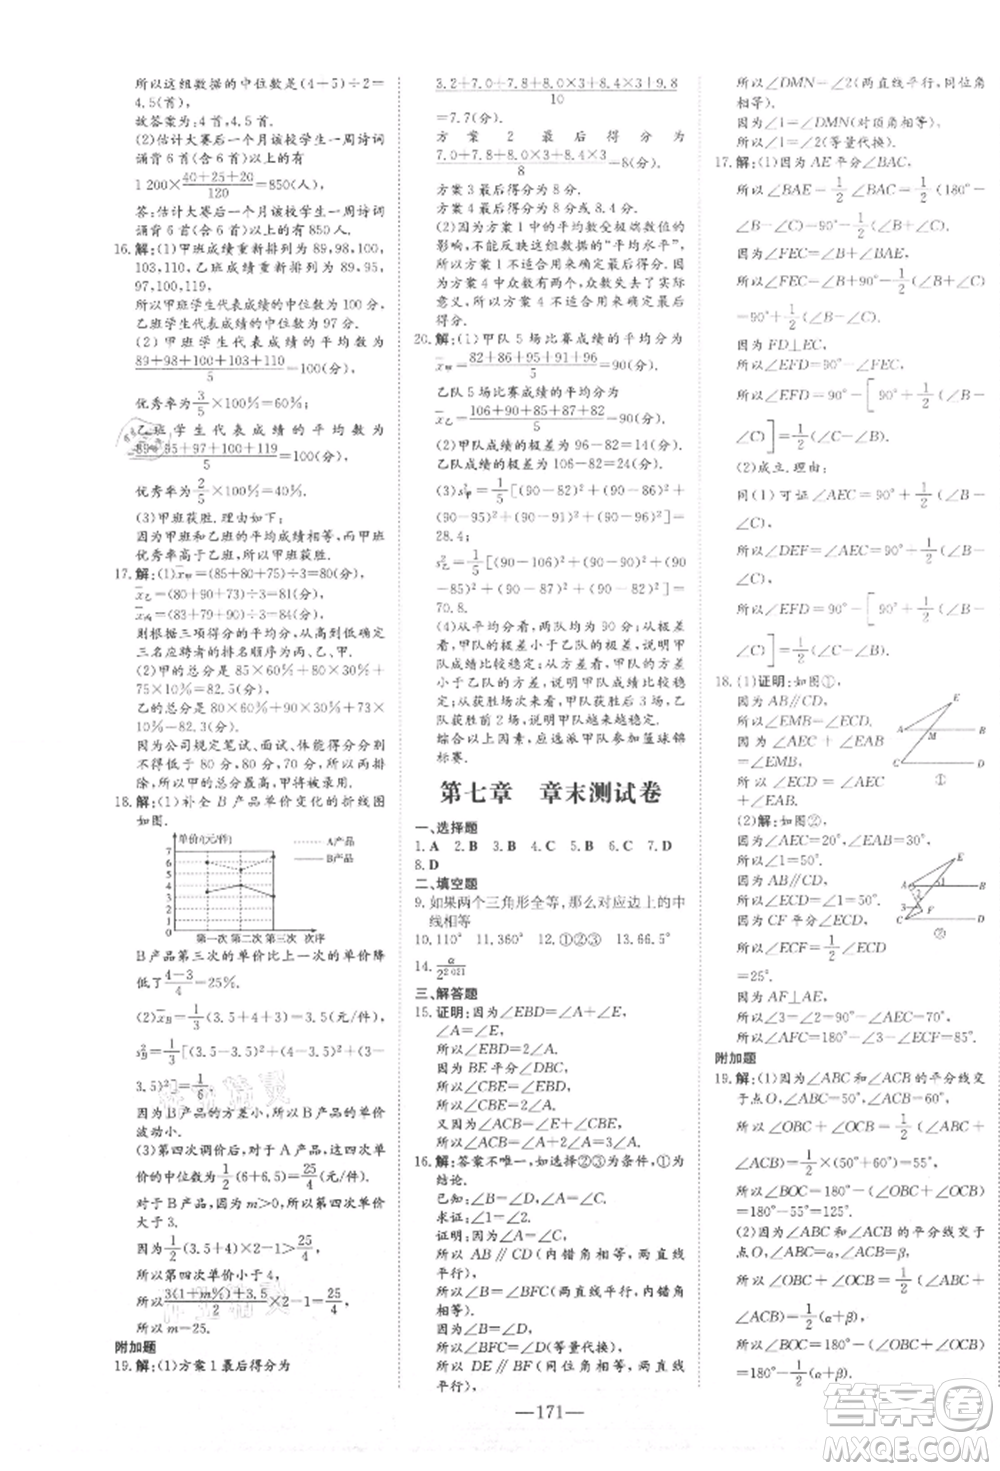 所以这组数据的中位数是(4+5)÷2=
4.5(首),
故答案为:4首,4.5首.
(2)估计大赛后一个月该校学生一周诗词
诵背6首(含6首)以上的有
1 200×(40+25+20)/120=850(人),
答:估计大赛后一个月该校学生一周诗词
诵背6首(含6首)以上的有850人.
16.解:(1)甲班成绩重新排列为89,98,100,
103,110,乙班成绩重新排列为89,95,
97,100,119.
所以甲班学生代表成绩的中位数为100分,
乙班学生代表成绩的中位数为97分.
(2)甲班学生代表成绩的平均数为
(89+98+100+103+110)/5=100(分),
优秀率为3/5×100%=60%;
乙班学生代表成绩的平均数为
(89+95+97+100+119)/5=100(分),
优秀率为2/5×100%=40%.
(3)甲班获胜.理由如下:
因为甲班和乙班的平均成绩相等,而甲班
优秀率高于乙班,所以甲班获胜.
17.解:(1)x̄甲=(85+80+87)÷3=84(分),
x̄乙=(80+90+73)÷3=81(分),
x̄丙=(83+79+90)÷3=84(分),
则根据三项得分的平均分,从高到低确定
三名应聘者的排名顺序为丙、甲、乙.
(2)甲的总分是85×60%+80×30%+
87×10%=
乙的总分是80×60%+90×30%+73×
10%=82.3(分).
因为公司规定笔试、面试、体能得分分别
不得低于80分,80分,70分,所以丙排
除,所以甲被录用.
18.解:(1)补全B产品单价变化的折线图
如图.
单价(元/件)
A产品
B产品
7
6
5
4
3
2
1
0
第一次 第二次 第三次 次序
B产品第三次的单价比上一次的单价
降低了(4-3)/4=25%.
(2)x̄B=1/3(3.5+4+3)=3.5(元/件),
s²B=1/3[(3.5-3.5)²+(4-3.5)²+(3-
3.5)²]=1/6,
因为B产品的方差小,所以B产品的单价
波动小.
(3)第四次调价后,对于A产品,这四次单
价的中位数为1/2(6+6.5)=25/4(元/件);
对于B产品,因为m>0,所以第四次单价
大于3.
因为1/2(3.5+4)×2-1>25/4,
所以第四次单价小于4,
所以[3(1+m%)+3.5]/2×2-1=25/4,
所以m=25.
附加题
19.解:(1)方案1最后得分为
(3.2+7.0+7.8+8.0×3+8.4×3+9.8)/10
=7.7(分).
方案2最后得分为
(7.0+7.8+8.0×3+8.4×3)/8=8(分)
方案3最后得分为8分
方案4最后得分为8分或8.4分.
(2)因为方案1中的平均数受极端数值的
影响,不能反映这组数据的“平均水平”,
所以方案1不适合作为最后得分的方案.
因为方案4中众数有两个,众数失去了实际
意义,所以方案4不适合作为最后
得分.
20.解:(1)甲队5场比赛成绩的平均分为
x̄甲=(82+86+95+91+96)/5=90(分),
乙队5场比赛成绩的平均分为
x̄乙=(106+90+85+87+82)/5=90(分).
(2)甲队成绩的极差为96-82=14(分),
乙队成绩的极差为106-82=24(分).
(3)s²甲=1/5[(90-82)²+(90-86)²+
(90-95)²+(90-91)²+(90-96)²]=
28.4;
s²乙=1/5[(90-106)²+(90-90)²+(90
-85)²+(90-87)²+(90-82)²]=
70.8.
(4)从平均分看,两队都为90分;从极差
看,甲队的极差小于乙队的极差,说明甲
队的成绩比较稳定;从方差看,甲队的方
差小于乙队的方差,说明甲队成绩比较稳
定;从获胜场数看,甲队胜三场,
乙队胜两场,说明甲队成绩较好.
综合以上因素,应选派甲队参加篮球锦
标赛.
第七章 章末测试卷
一、选择题
1. A 2. B 3. B 4. C 5. C 6. C 7. D
8. D
二、填空题
9. 如果两个三角形全等,那么对应边上的中
线相等
10. 110° 11. 360° 12. ①②③ 13. 66.5°
14. α/2^2 021
三、解答题
15. 证明:因为∠EBD=∠EDB,
∠A=∠E,
所以∠EBD=2∠A.
所以∠CBE=∠EBD,
所以∠CBE=2∠A.
又因为∠CBE=∠A+∠ACB,
所以∠ACB=∠A.
16. 解:答案不唯一,如选择②③为条件,①为
结论.
已知:∠A=∠D,∠B=∠C.
求证:∠1=∠2.
证明:因为∠A=∠D,
所以AB∥CD(内错角相等,两直线
平行),
所以∠B=∠BFC(两直线平行,内错角
相等).
因为∠B=∠C,
所以∠BFC=∠C(等量代换),
所以DE∥BF(同位角相等,两直线
平行),
所以∠DMN=∠2(两直线平行,同位角
相等).
因为∠1=∠DMN(对顶角相等),
所以∠1=∠2(等量代换).
17. 解:(1)因为AE平分∠BAC,
所以∠BAE=1/2∠BAC=1/2(180°-
∠B-∠C)=90°-1/2(∠B+∠C).
因为∠FEC=∠B+∠BAE,
所以∠FEC=∠B+90°-1/2(∠B+∠C)
=90°+1/2(∠B-∠C).
因为FD⊥EC,
所以∠EFD=90°-∠FEC,
所以∠EFD=90°-[90°+1/2(∠B-
∠C)]=1/2(∠C-∠B).
(2)成立.理由:
同(1)可证∠AEC=90°+1/2(∠B-
∠C),
所以∠DEF=∠AEC=90°+1/2(∠B-
∠C),
所以∠EFD=90°-[90°+1/2(∠B-
∠C)]=1/2(∠C-∠B).
18. (1)证明:如图①,
因为AB∥CD,
所以∠EMB=∠ECD.
因为∠EMB=
∠A+∠AEC,
所以∠ECD=∠A
+∠AEC.
E
A
M
B
C
D
①
(2)解:如图②,
因为∠AEC=20°,∠EAB=30°,
所以∠1=∠EAB+
∠AEC=50°,
所以∠ECD=50°.
因为CF平分∠ECD,
所以∠ECF=1/2∠ECD
=25°.
因为AF⊥AE,
E
A
1
B
2
3
F
C
D
②
所以∠3=∠2=90°-∠AEC=70°,
所以∠AFC=180°-∠3-∠ECF=85°.
附加题
19. 解:(1)因为∠ABC和∠ACB的平分线交于
点O,∠ABC=50°,∠ACB=60°,
所以∠OBC+∠OCB=1/2(∠ABC+
∠ACB)=1/2×(50°+60°)=55°,
所以∠BOC=180°-(∠OBC+∠OCB)
=180°-55°=125°.
(2)因为∠ABC和∠ACB的平分线交于
点O,∠ABC=α,∠ACB=β,
所以∠OBC+∠OCB=1/2(∠ABC+
∠ACB)=1/2(α+β),
所以∠BOC=180°-(∠OBC+∠OCB)
=180°-1/2(α+β).
—171—
答案圈
MXQE.COM